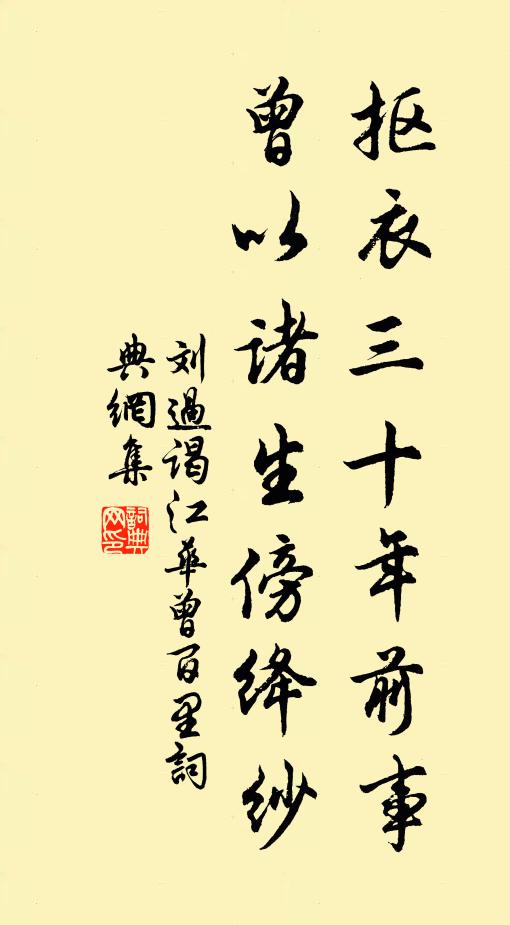 抠衣三十年前事
曾以诸生傍绛纱
刘過谒江華曾百里詞
典網集
詞典網印